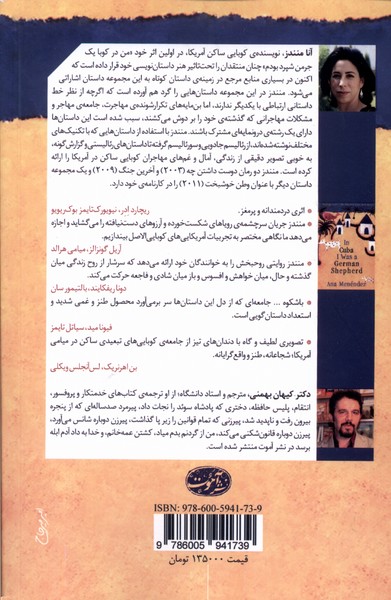 آنا منندز، نویسنده‌ی کوبایی ساکن آمریکا، در اولین اثر خود «من در کوبا یک
جرمن شپرد بودم» چنان منتقدان را تحت‌تاثیر هنر داستان‌نویسی خود قرار داده است که
اکنون در بسیاری منابع مرجع در زمینه‌ی داستان کوتاه به این مجموعه داستان اشاراتی
می‌شود. منندز در این مجموعه داستان‌هایی را گرد هم آورده است که اگرچه از نظر خط
داستانی ارتباطی با یکدیگر ندارند، اما بن‌مایه‌های تکرارشونده‌ی مهاجرت، جامعه‌ی مهاجر و
مشکلات مهاجرانی که گذشته‌ی خود را بر دوش می‌کشند، سبب شده است این داستان‌ها
دارای یک رشته‌ی درونمایه‌های مشترک باشند. منندز با استفاده از داستان‌هایی که با تکنیک‌های
مختلف نوشته شده‌اند، از رئالیسم جادویی و سورئالیسم گرفته تا داستان‌های رئالیستی و گزارش‌گونه،
به خوبی تصویر دقیقی از زندگی، آمال و غم‌های مهاجران کوبایی ساکن در آمریکا را ارائه
کرده است. منندز دو رمان دوست داشتن چه (۲۰۰۳) و آخرین جنگ (۲۰۰۹) و یک مجموعه
داستان دیگر با عنوان وطن خوشبخت (۲۰۱۱) را در کارنامه‌ی خود دارد.
اثری دردمندانه و پرمغز.
ریچارد اِدر، نیویورک‌تایمز بوک‌ریویو
منندز جریان سرچشمه‌ی رویاهای شکست‌خورده و آرزوهای دست‌نیافته را می‌گشاید و اجازه
می‌دهد ما نگاهی مختصر به تجربیات آمریکایی‌های کوبایی‌الاصل بیندازیم.
آریل گونزالز، میامی هرالد
منندز روایتی روحبخش را به خوانندگان خود ارائه می‌دهد که سرشار از روح زندگی میان
گذشته و حال، میان خواهش و افسوس و باز میان شادی و فاجعه حرکت می‌کند.
دونا ریفکایند، بالتیمور سان
باشکوه ... جامعه‌ای که از دل این داستان‌ها سر برمی‌آورد محصول طنز و غمی شدید و
استعداد داستان‌گویی است.
فیونا مید، سیاتل تایمز
تصویری لطیف و گاه با دندان‌های تیز از جامعه‌ی کوبایی‌های تبعیدی ساکن در میامی
آمریکا؛ شجاعانه، طنز و واقع‌گرایانه.
بن اهرنریک، لس‌آنجلس ویکلی
In
Cuba
I Was a
German
Shepherd
Ana Menéndez
دکتر کیهان بهمنی، مترجم و استاد دانشگاه؛ از او ترجمه‌ی کتاب‌های خدمتکار و پروفسور،
انتقام، پلیس حافظه، دختری که پادشاه سوئد را نجات داد، پیرمرد صدساله‌ای که از پنجره
بیرون رفت و ناپدید شد، پیرزنی که تمام قوانین را زیر پا گذاشت، پیرزن دوباره شانس می‌آورد،
پیرزن دوباره قانون‌شکنی می‌کند، من از گردنم بدم میاد، کشتن عمه‌خانم، و خدا به داد آدم ابله
برسد در نشر آموت منتشر شده است.
نشر آموت
ISBN: 978-600-5941-73-9
9 786005 941739
قیمت ۱۳۵۰۰۰ تومان